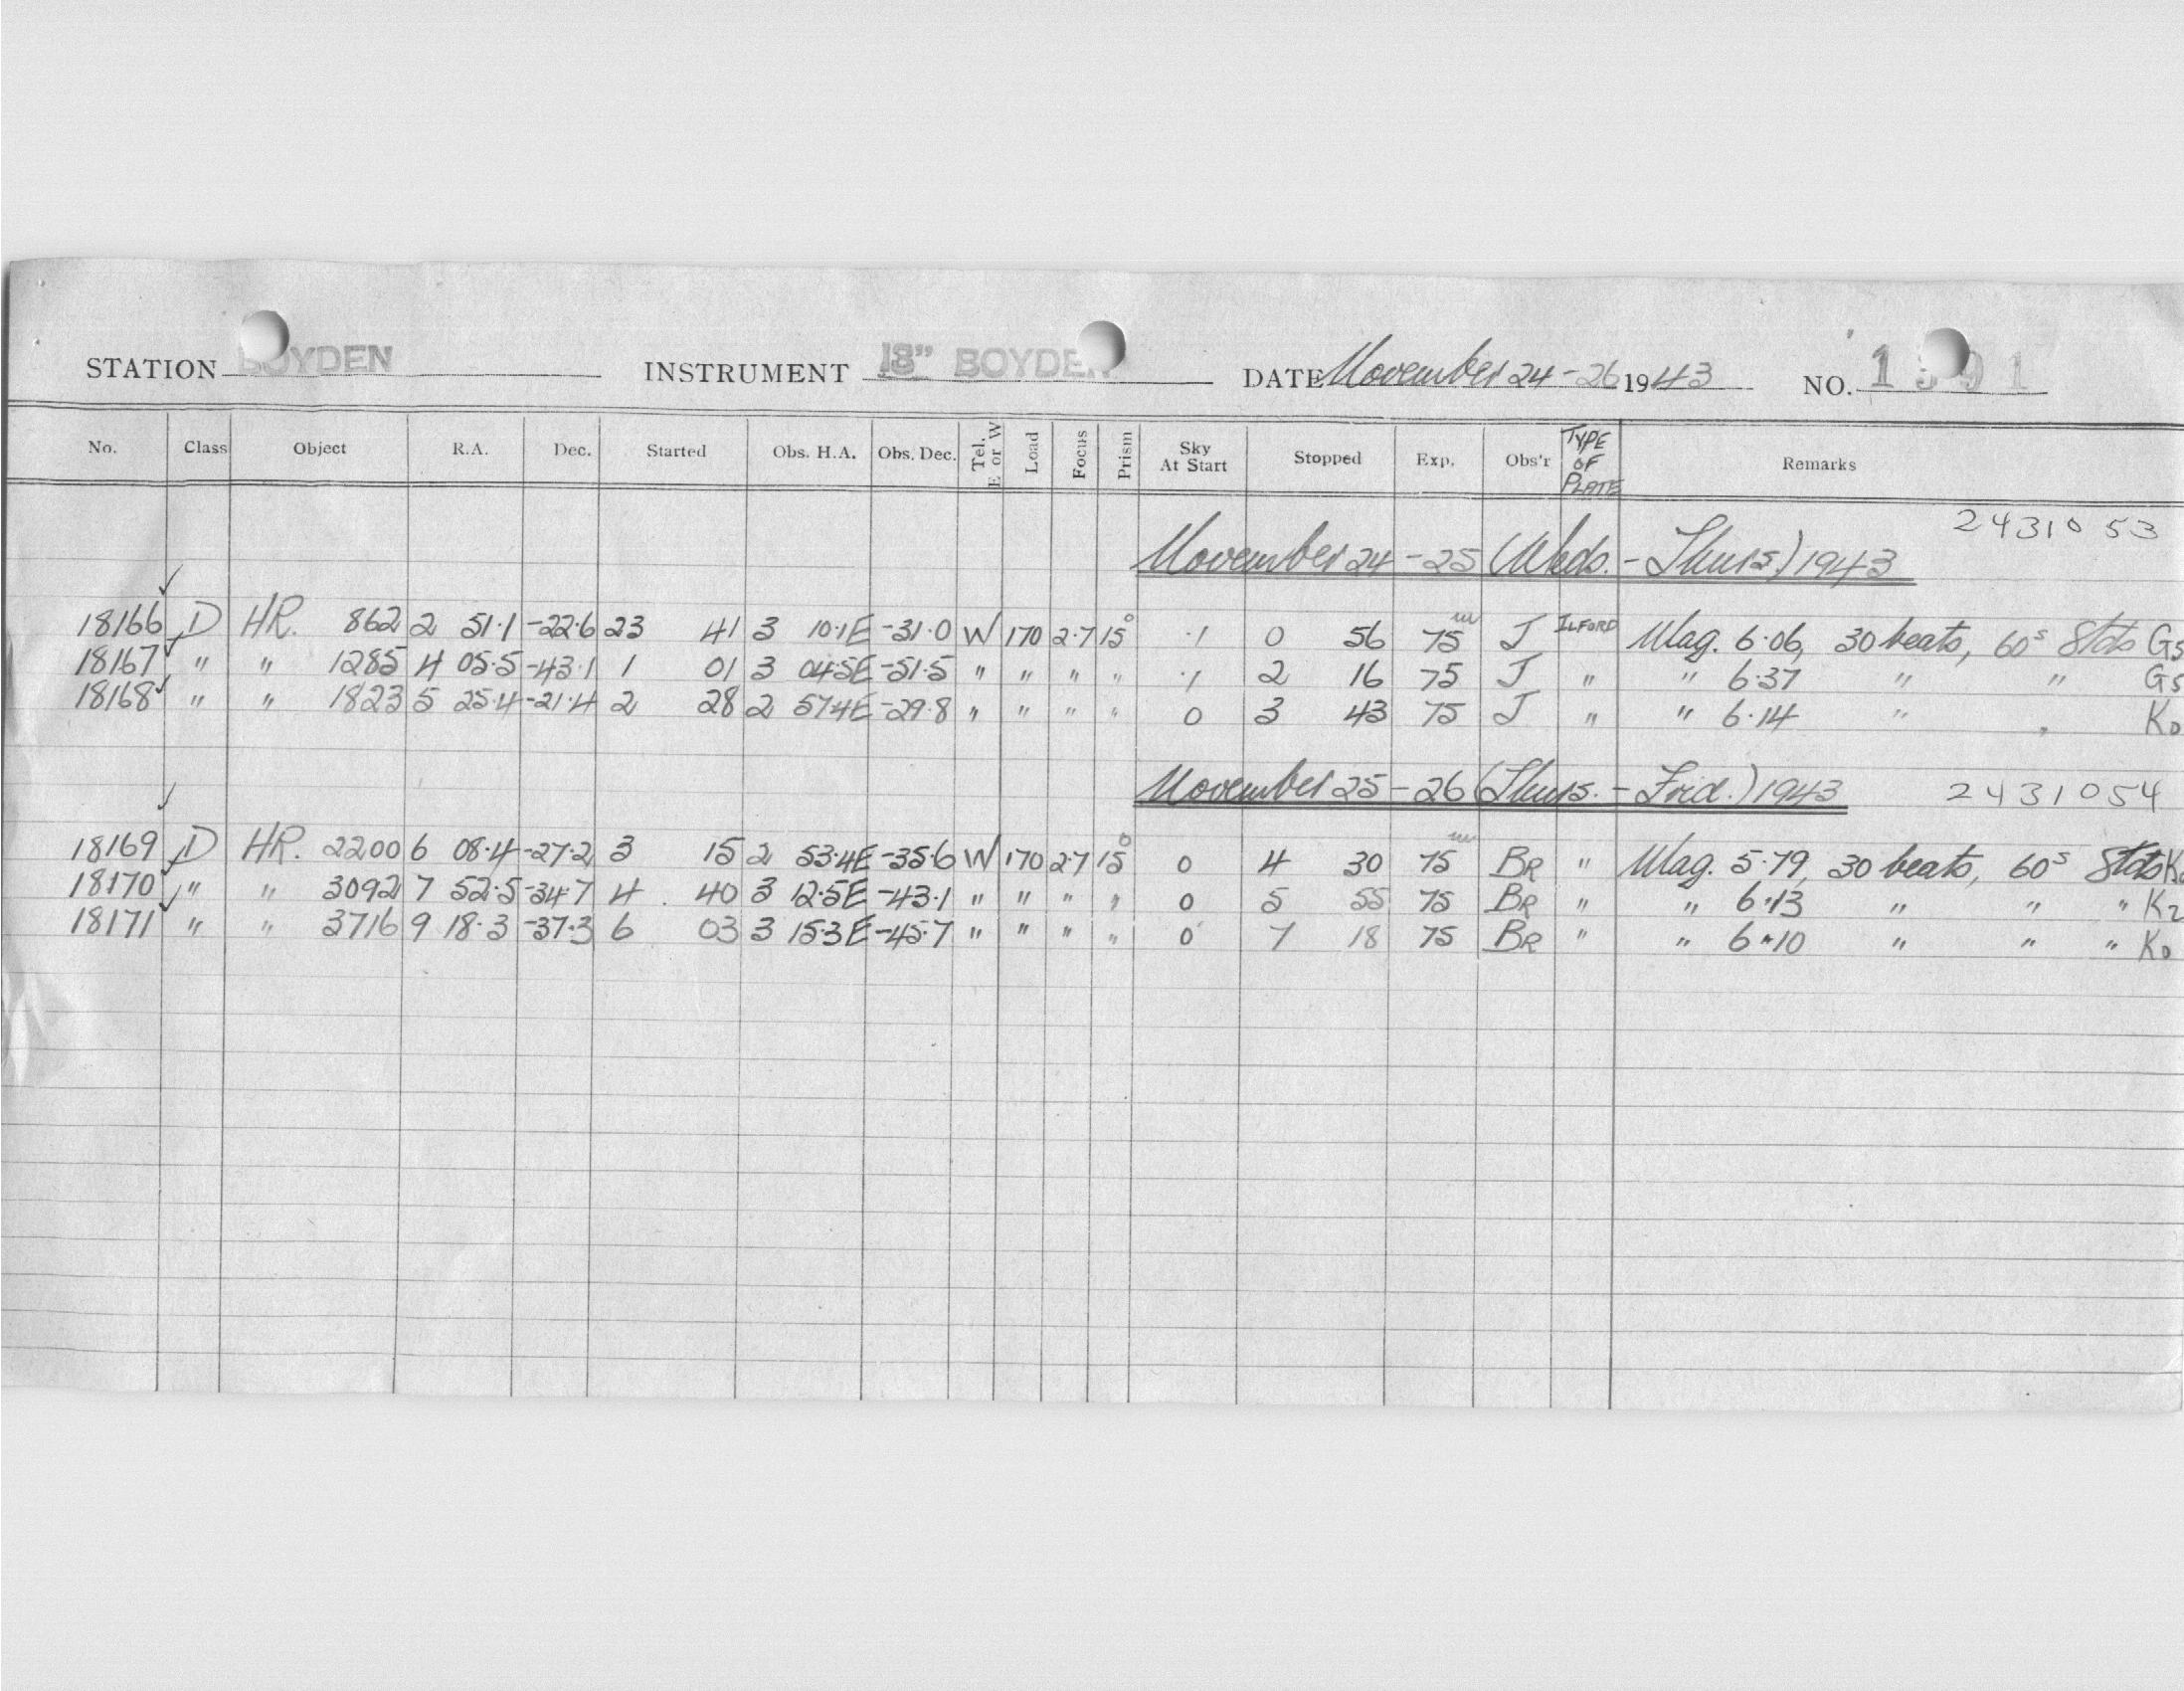 STATION BOYDEN INSTRUMENT 18" BOYDEN DATE November 24-26 1943 NO. 1
No. Class Object R.A. Dec. Started Obs. H.A. Obs. Dec. Tel. E or W Load Focus Prism Sky At Start Stopped Exp. Obs'r TYPE OF PLATE Remarks
2431053
November 24-25 (Weds.-Thurs.) 1943
18166 D HR. 862 2 51.1 -22.6 23 41 3 10.1E -31.0 W 170 2.7 15° .1 0 56 75m J ILFORD Mag. 6.06, 30 beats, 60s Stds G5
18167 " " 1285 4 05.5 -43.1 1 01 3 04.5E -51.5 " " " " .1 2 16 75 J " " 6.37 " " G5
18168 " " 1823 5 25.4 -21.4 2 28 2 57.4E -29.8 " " " " 0 3 43 75 J " " 6.14 " " K0
November 25-26 (Thurs.-Frid.) 1943 2431054
18169 D HR. 2200 6 08.4 -27.2 3 15 2 53.4E -35.6 W 170 2.7 15° 0 4 30 75m BR " Mag. 5.79, 30 beats, 60s Stds
18170 " " 3092 7 52.5 -34.7 4 40 3 12.5E -43.1 " " " " 0 5 55 75 BR " " 6.13 " " " K2
18171 " " 3716 9 18.3 -37.3 6 03 3 15.3E -45.7 " " " " 0 7 18 75 BR " " 6.10 " " " K0